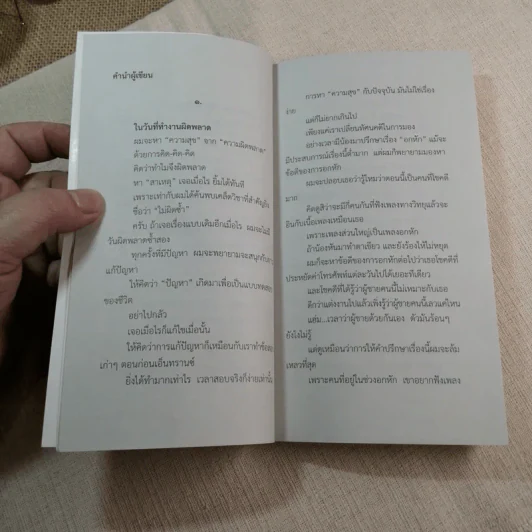 คำนำผู้เขียน
๑.
ในวันที่ทำงานผิดพลาด
ผมจะหา “ความสุข” จาก “ความผิดพลาด”
ด้วยการคิด-คิด-คิด
คิดว่าทำไมจึงผิดพลาด
หา “สาเหตุ” เจอเมื่อไร ยิ้มได้ทันที
เพราะเท่ากับผมได้ค้นพบเคล็ดวิชาที่สำคัญยิ่ง
ชื่อว่า “ไม่ผิดซ้ำ”
ครับ ถ้าเจอเรื่องแบบเดิมอีกเมื่อไร ผมจะไม่มี
วันผิดพลาดซ้ำสอง
ทุกครั้งที่มีปัญหา ผมจะพยายามจะสนุกกับการ
แก้ปัญหา
ให้คิดว่า “ปัญหา” เกิดมาเพื่อเป็นแบบทดสอบ
ของชีวิต
อย่าไปกลัว
เจอเมื่อไรก็แก้ไขเมื่อนั้น
ให้คิดว่าการแก้ปัญหาก็เหมือนกับเราทำข้อสอบ
เก่าๆ ตอนก่อนเอ็นทรานซ์
ยิ่งได้ทำมากเท่าไร เวลาสอบจริงก็ง่ายเท่านั้น
การหา “ความสุข” กับปัจจุบัน มันไม่ใช่เรื่อง
ง่าย
แต่ก็ไม่ยากเกินไป
เพียงแค่เราเปลี่ยนทัศนคติในการมอง
อย่างเวลามีน้องมาปรึกษาเรื่อง “อกหัก” แม้จะ
มีประสบการณ์เรื่องนี้ต่ำมาก แต่ผมก็พยายามมองหา
ข้อดีของการอกหัก
ผมจะปลอบเธอว่ารู้ไหมว่าตอนนี้เป็นคนที่โชคดี
มาก
คิดดูสิว่าจะมีกี่คนกันที่ฟังเพลงทางวิทยุแล้วจะ
อินกับเนื้อเพลงเหมือนเธอ
เพราะเพลงส่วนใหญ่เป็นเพลงอกหัก
ถ้าน้องหันมาทำตาเขียว และยังร้องไห้ไม่หยุด
ผมก็จะหาข้อดีของการอกหักต่อไปว่าเธอโชคดีที่
ประหยัดค่าโทรศัพท์แต่ละวันไปได้เยอะทีเดียว
และโชคดีที่ได้รู้ว่าผู้ชายคนนี้ไม่เหมาะกับเธอ
ดีกว่าแต่งงานไปแล้วเพิ่งรู้ว่าผู้ชายคนนี้เลวแค่ไหน
แฮ่ม...เวลาว่าผู้ชายด้วยกันเอง ตัวมันร้อนๆ
ยังไงไม่รู้
แต่ดูเหมือนว่าการให้คำปรึกษาเรื่องนี้ผมจะล้ม
เหลวที่สุด
เพราะคนที่อยู่ในช่วงอกหัก เขาอยากฟังเพลง